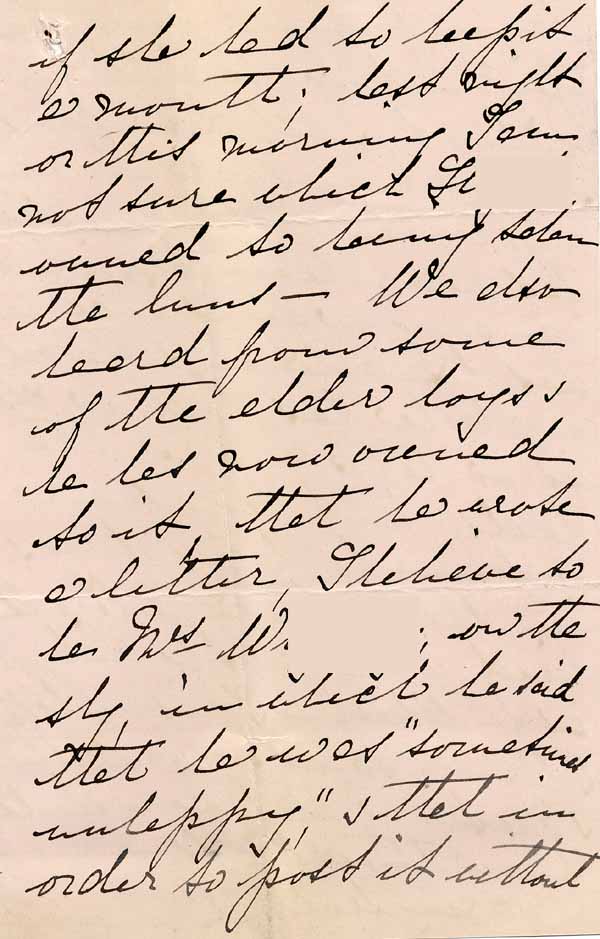 if she had to keep it
a month; last night
or this morning I am
not sure which
owned to having stolen
the buns — We also
heard from some
of the elder boys &
he has now owned
to it, that he wrote
a letter, I believe to
be Mrs W. ; on the
sly, in which he said
that he was "sometimes
unhappy," & that in
order to post it without